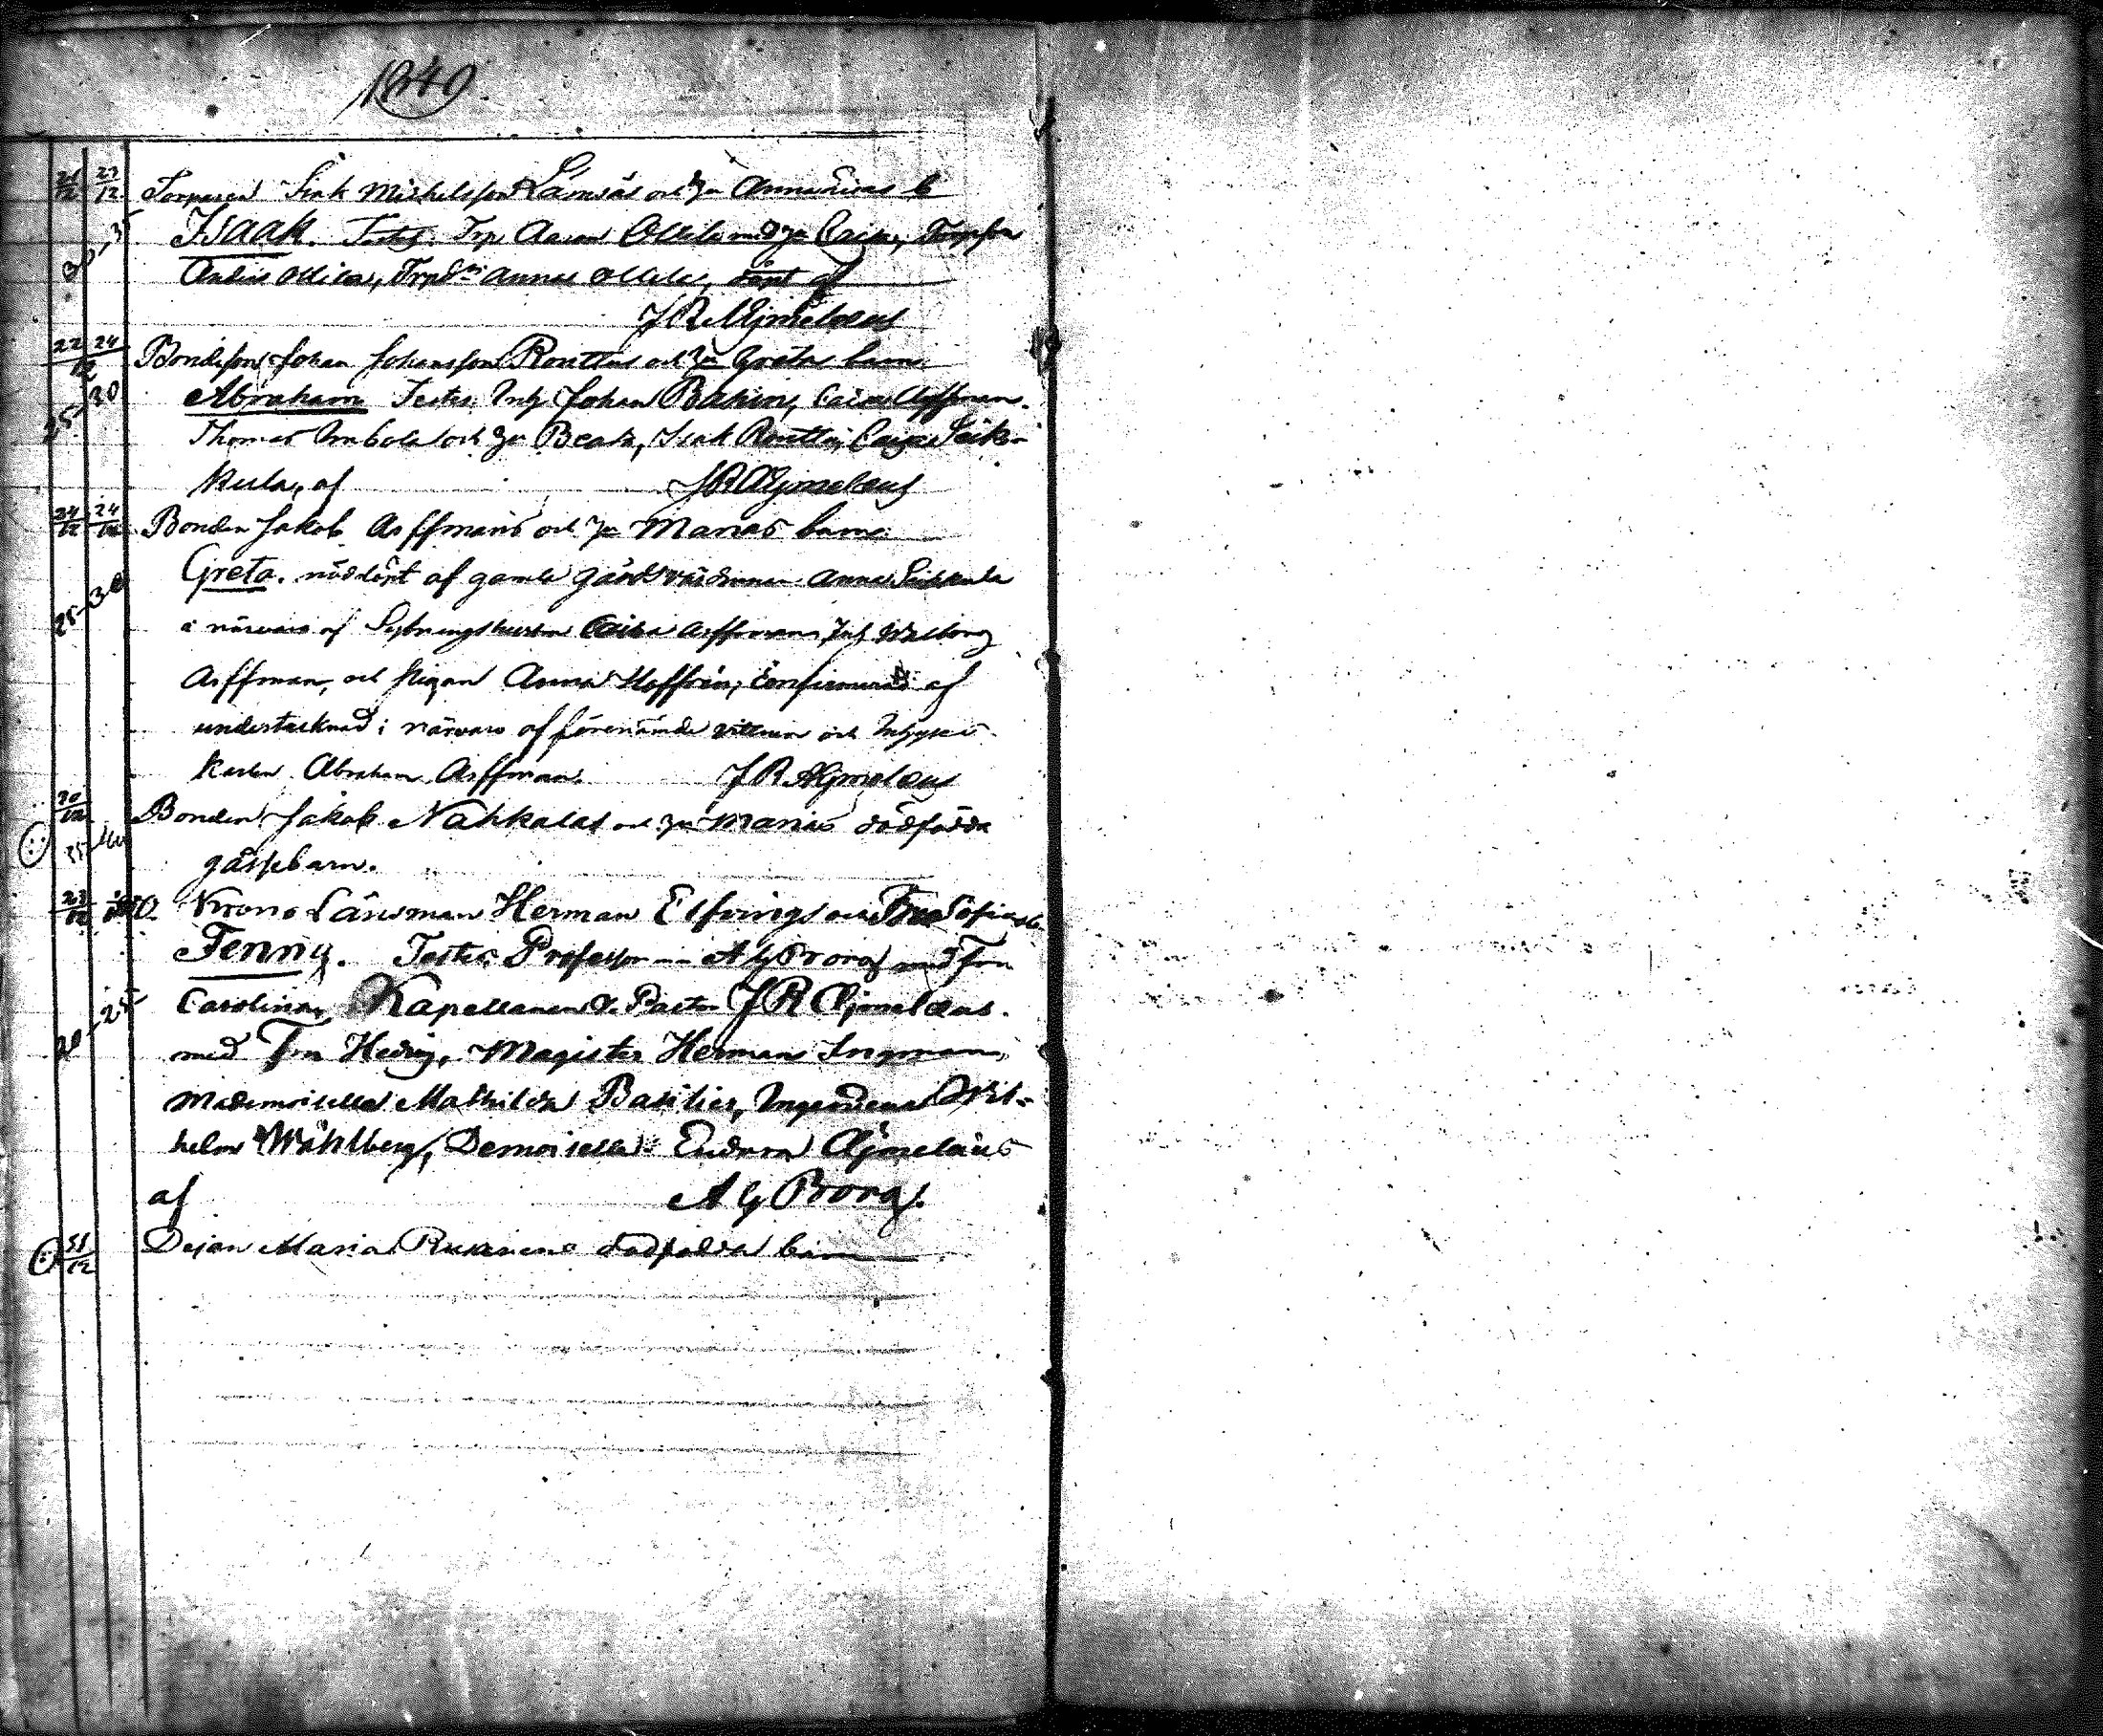 1849
21/12 23/12 Torparen Isak Michelsson Länsäs och Hu Anna Elises b
30-35 Isaak. Testes. Trp Aaron Ollila med Hu Caisa, Torpson
Anders Ollila, Trpd:n Anna Ollila, döpt af
J R Aejmelaeus
22 24/12 Bondeson Johan Johansson Routtus och Hu Gretas barn
25-30 Abraham Testes. Inh Johan Bakin, Caisa Asffman.
Thomas och Hu Beata, Isak Routtu, Caisa Seik-
kula, af J R Aejmelaeus
24/12 24/12 Bonden Jakob Asffmans och Hu Marias barn
25-30 Greta. nöddöpt af gamla gårdsvärdinnan Anna Seikkula
i närvaro af Sytningshustrun Caisa Asffman, Inh Walborg
Asffman, och pigan Anna Hoffrén; confirmerad af
undertecknad i närvaro af förenämde vittnen och Inhyses
karlen Abraham Asffman. J R Aejmelaeus
30/12 Bonden Jakob Nahkalas och Hu Marias dödfödda
25- gåssebarn.
23/12 Krono Länsman Herman Elfvings och Fru Sofias b.
Jenny. Testes. Professor A G Borg med Fru
20-25 Carolina, Kapellanen V. Pastor J R Aejmelaeus
med Fru Hedvig, Magister Herman Ingman,
Mademoiselle Mathilda Basilier, Ingeniören Wil-
helm Wåhlberg, Demoiselle Eudora Aejmelaeus
af A G Borg.
31/12 Dejan Maria dödfödda barn